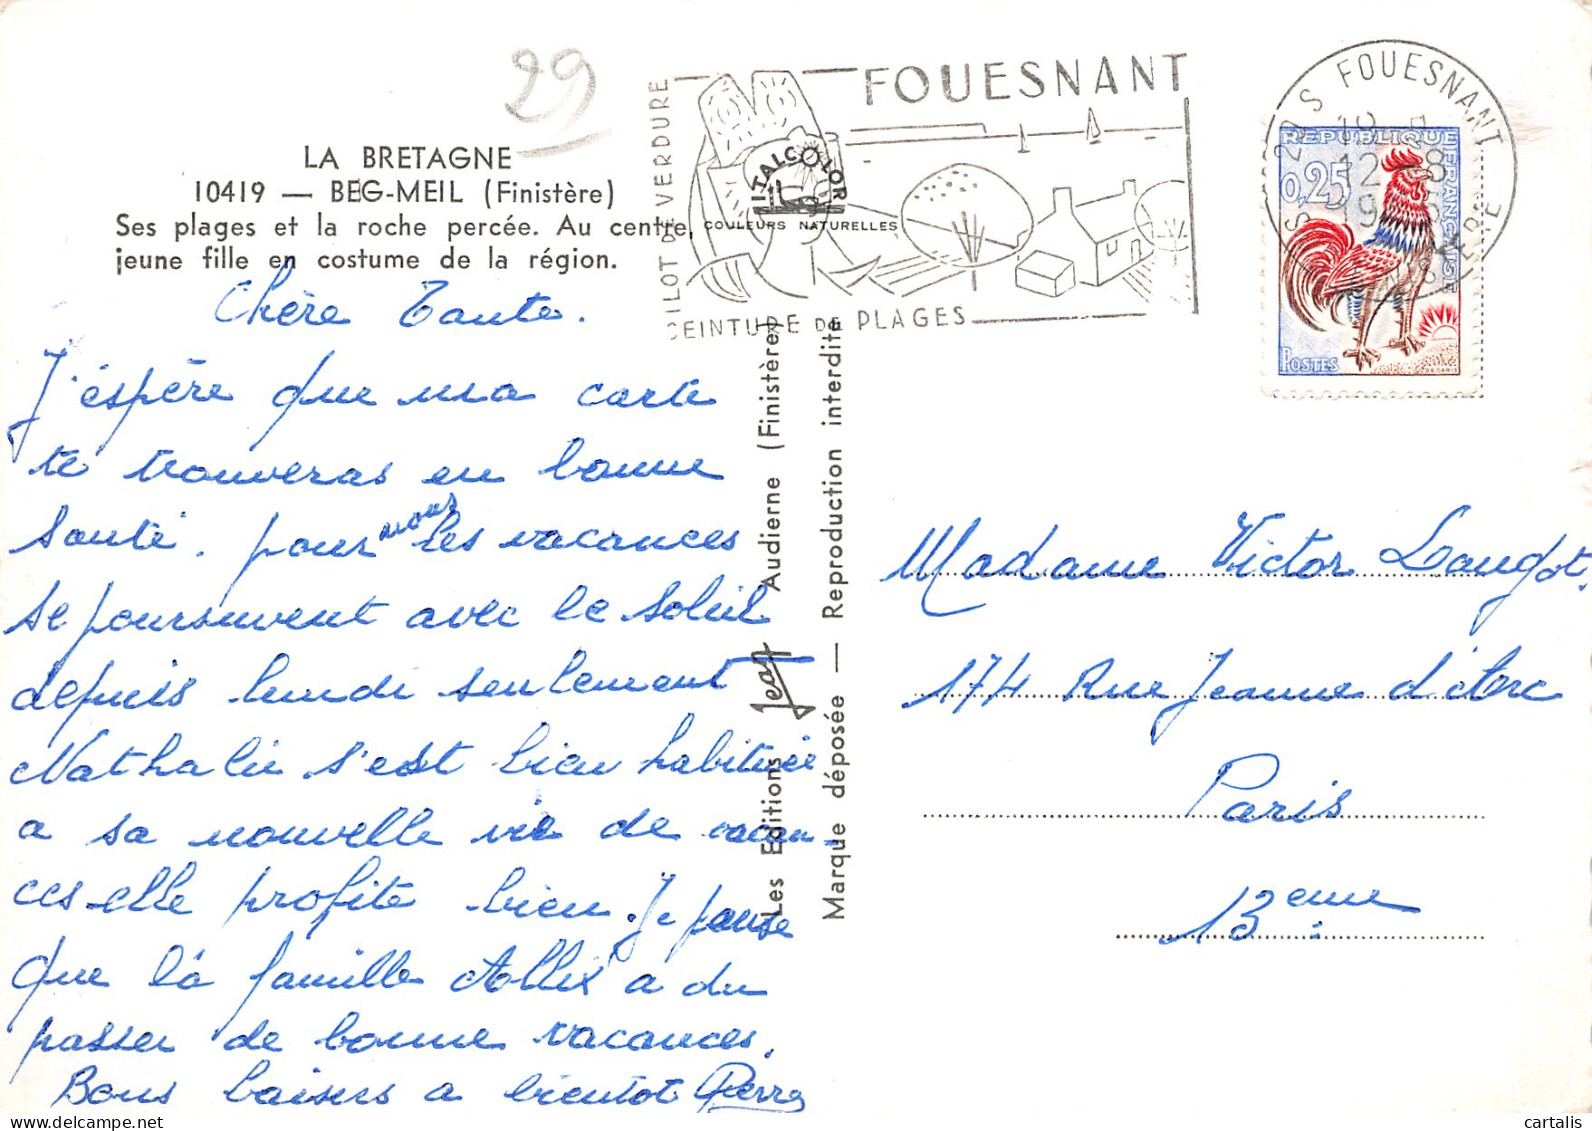 29
LA BRETAGNE
10419 — BEG-MEIL (Finistère)
Ses plages et la roche percée. Au centre,
jeune fille en costume de la région.
Chère Tante.
J'éspère que ma carte
te trouveras en bonne
Santé. pour nous les vacances
se poursuivent avec le soleil
depuis lundi seulement
Nathalie s'est bien habituée
a sa nouvelle vie de vacan-
ces elle profite bien. Je pense
que la famille Allix a du
passer de bonne vacances.
Bons baisers a bientot Pierre
ILOT DE VERDURE
FOUESNANT
CEINTURE DE PLAGES
ITALCOLOR
COULEURS NATURELLES
Les Editions Jean Audierne (Finistère)
Marque déposée — Reproduction interdite
29 S FOUESNANT
12 - 8
REPUBLIQUE FRANÇAISE
0,25
POSTES
DECARIS
Madame Victor Laugot.
174 Rue Jeanne d'Arc
Paris
13eme
delcampe.net
cartalis